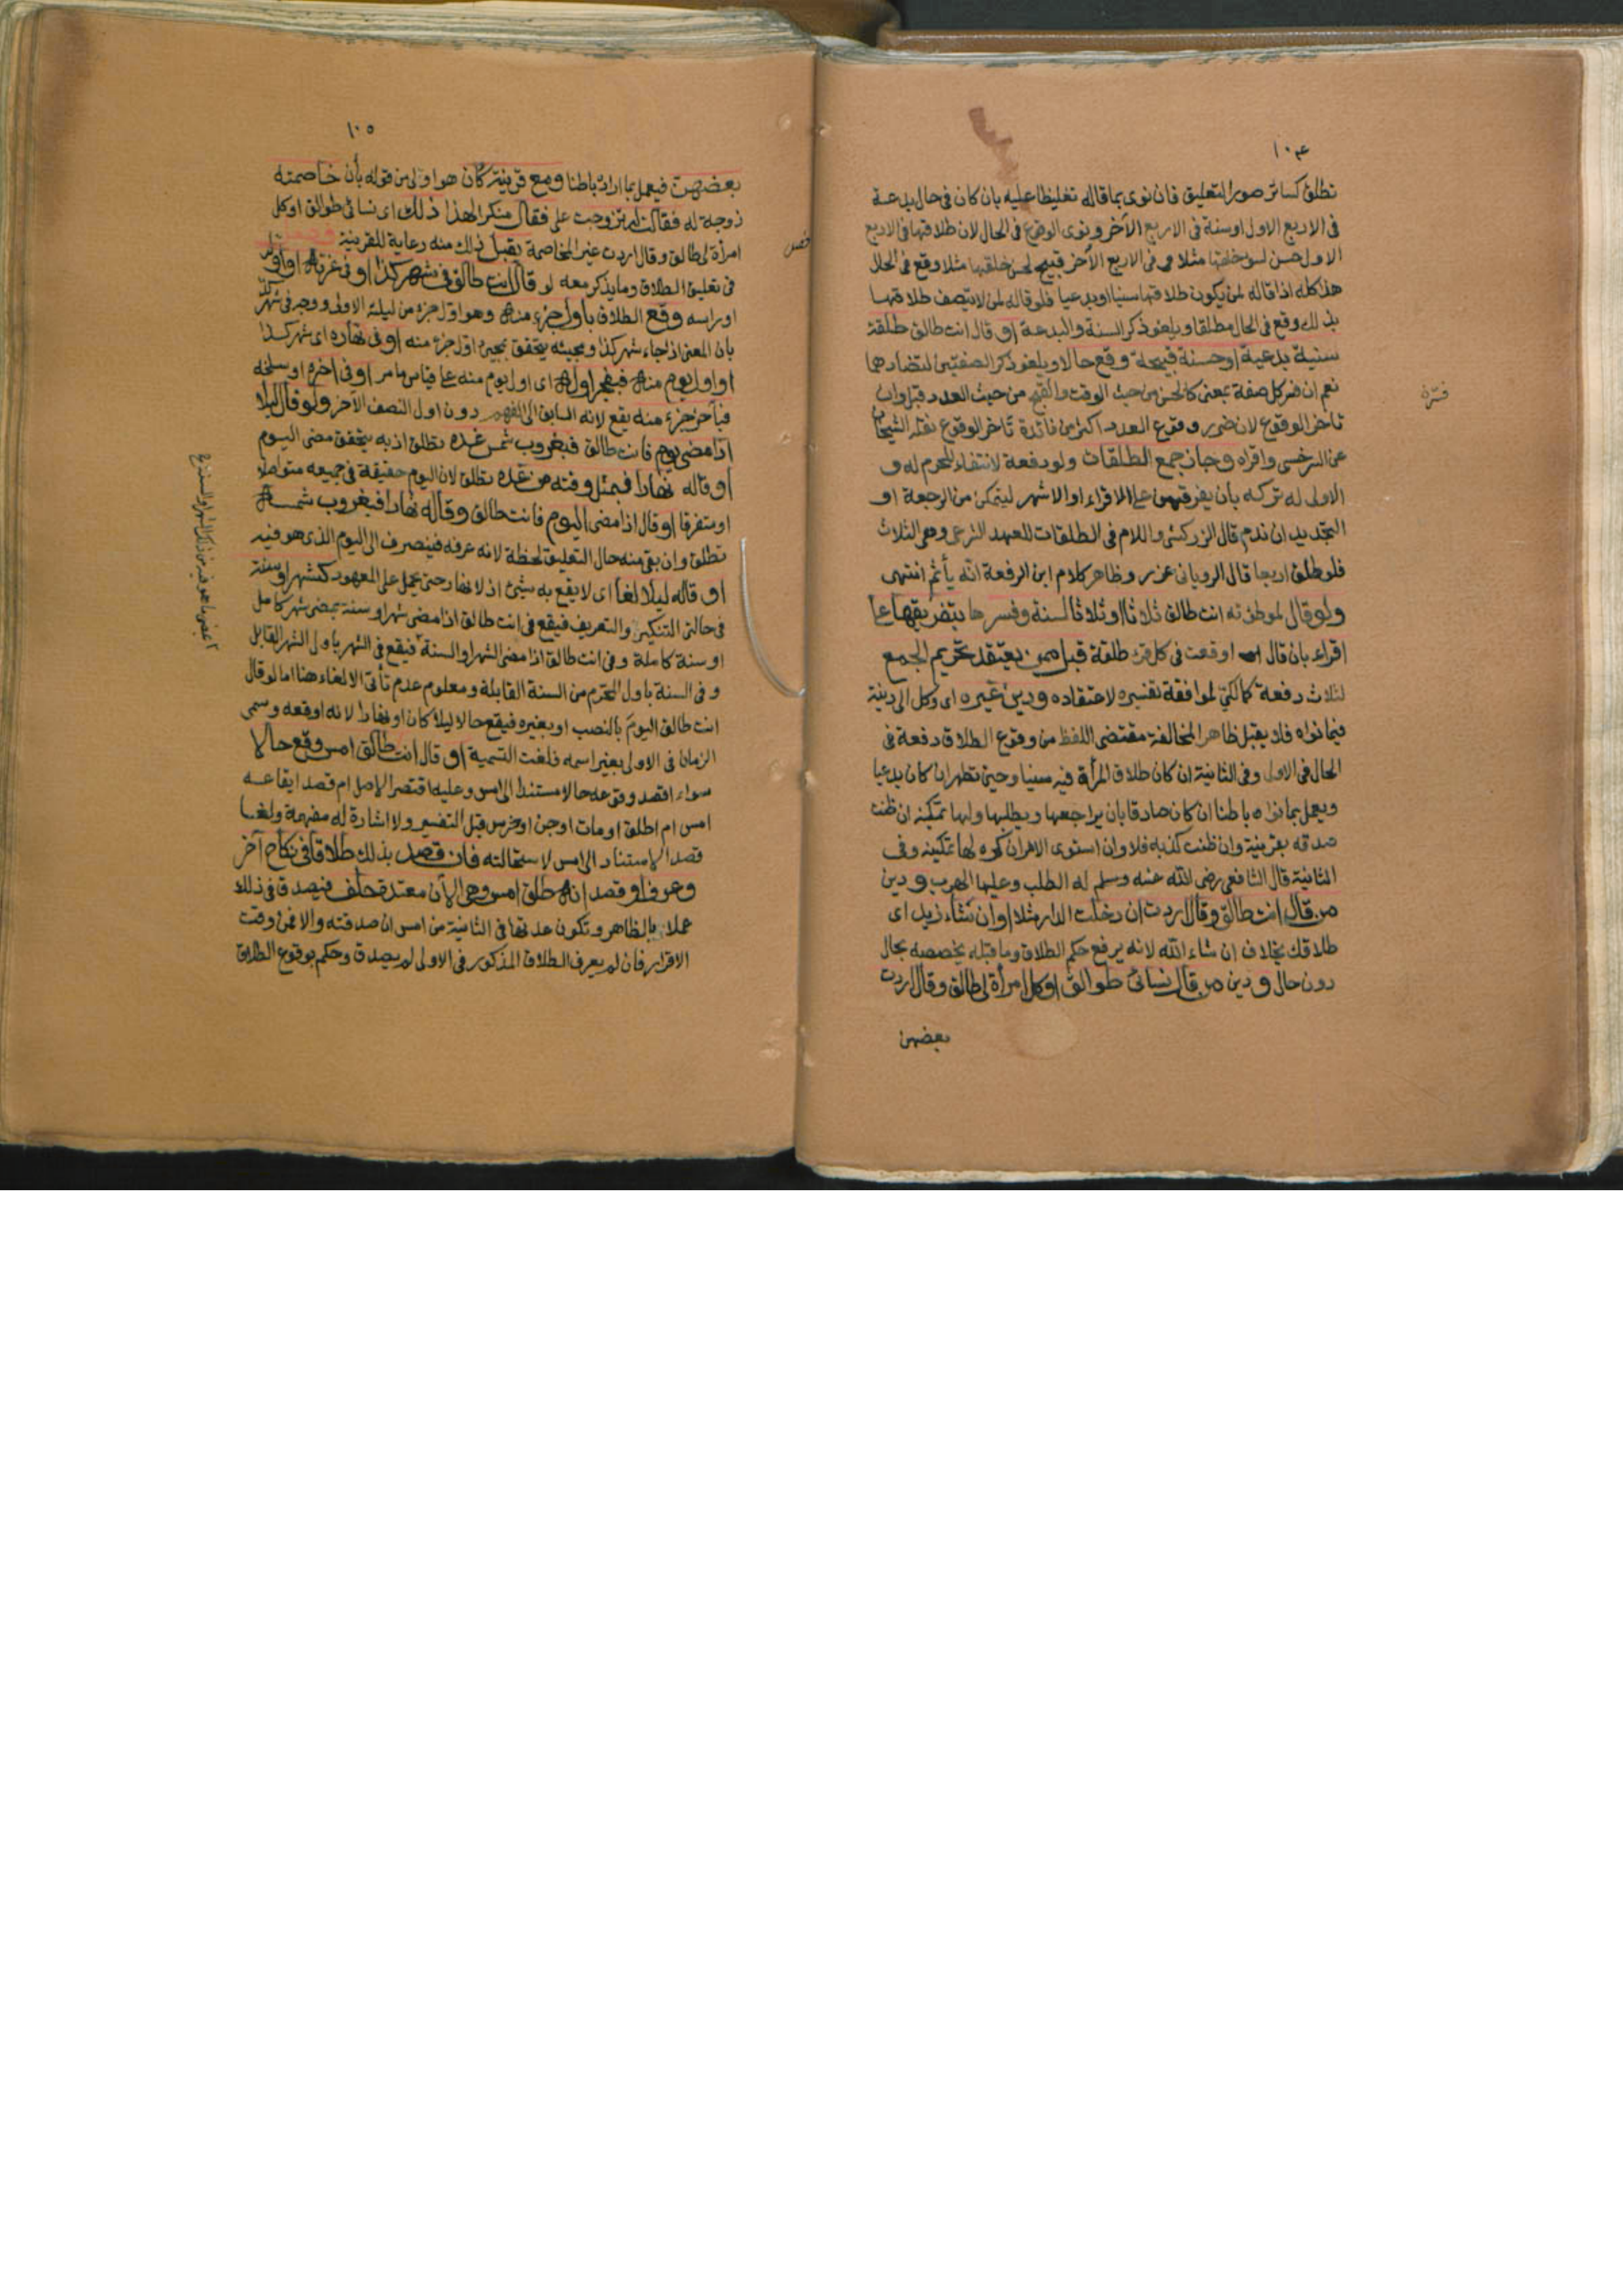 ١٠٤
تطلق كسائر صور التعليق فان نوى بما قاله تغليظا عليه بان كان في حال بدعة
في الاربع الاول او سنة في الاربع الآخر ونوى الوقوع في الحال لان طلاقها في الاربع
الاول حسن لسوء خلقها مثلا وفي الاربع الآخر قبيح لحسن خلقها مثلا وقع في الحال
هذا كله اذا قاله لمن يكون طلاقها سنيا او بدعيا فلو قاله لمن لا يتصف طلاقها
بذلك وقع في الحال مطلقا ويلغو ذكر السنة والبدعة او قال انت طالق طلقة
سنية بدعية او حسنة قبيحة وقع حالا ويلغو ذكر الصفتين لتضادهما
نعم ان فسر كل صفة بمعنى كالحسن من حيث الوقت والقبح من حيث العدد قبل وان
فسّره
تاخر الوقوع لان ضرر وقوع العدد اكثر من فائدة تأخر الوقوع نقله الشيخان
عن السرخسي واقراه وجاز جمع الطلقات ولو دفعة لانتفاء المحرم له و
الاولى له تركه بأن يفرقهن على الاقراء او الاشهر ليتمكن من الرجعة او
التجديد ان ندم قال الزركشي واللام في الطلقات للعهد الشرعي وهى الثلاث
فلو طلق اربعا قال الرويانى عزر وظاهر كلام ابن الرفعة انه يأثم انتهى
ولو قال لموطوئته انت طالق ثلاثا او ثلاثا لسنة وفسرها بتفريقها على
اقراء بان قال اوقعت في كل قرء طلقة قبل ممن يعتقد تحريم الجمع
لثلاث دفعة كمالكي لموافقة تفسيره لاعتقاده ودين غيره اى وكل الى دينه
فيما نواه فلا يقبل ظاهرا لمخالفته مقتضى اللفظ من وقوع الطلاق دفعة في
الحال في الاولى وفي الثانية ان كان طلاق المرأة فيه سنيا وحين تطهر ان كان بدعيا
ويعمل بما نواه باطنا ان كان صادقا بان يراجعها ويطلبها ولها تمكينه ان ظنت
صدقه بقرينة وان ظنت كذبه فلا وان استوى الامران كره لها تمكينه وفى
الثانية قال الشافعي رضى الله عنه وسلم له الطلب وعليها الهرب ودين
من قال انت طالق وقال اردت ان دخلت الدار مثلا او ان شاء زيد اى
طلاقك بخلاف ان شاء الله لانه يرفع حكم الطلاق وما قبله يخصصه بحال
دون حال ودين من قال نسائى طوالق او كل امرأة لى طالق وقال اردت
بعضهن
١٠٥
بعضهن فيعمل بما اراده باطنا ومع قرينة كأن هو اولى من قوله بأن خاصمته
زوجة له فقالت له تزوجت على فقال منكرا لهذا ذلك اى نسائى طوالق او كل
امرأة لى طالق وقال اردت غير المخاصمة يقبل ذلك منه رعاية للقرينة
فصل
في تعليق الطلاق وما يذكر معه لو قال انت طالق في شهر كذا او في غرته او اوله
او راسه وقع الطلاق باول جزء منه وهو اول جزء من ليلته الاولى ووجه في شهر كذا
بان المعنى اذا جاء شهر كذا ومجيئه يتحقق بمجئ اول جزء منه او فى نهاره اى شهر كذا
او اول يوم منه فبفجر اوله اى اول يوم منه على قياس ما مر او فى اخره او سلخه
فبآخر جزء منه يقع لانه السابق الى الفهم دون اول النصف الآخر ولو قال ليلا
اذا مضى يوم فانت طالق فبغروب شمس غده تطلق اذ به يتحقق مضى اليوم
او قاله نهارا فبمثل وقته من غده تطلق لان اليوم حقيقة في جميعه متواصلا
او متفرقا او قال اذا مضى اليوم فانت طالق وقاله نهارا فبغروب شمسه
تطلق وان بقى منه حال التعليق لحظة لانه عرفه فينصرف الى اليوم الذى هو فيه
او قاله ليلا لغا اى لا يقع به شيئ اذ لا نهار حتى يحمل على المعهود كشهر او سنة
في حالتى التنكير والتعريف فيقع في انت طالق اذا مضى شهر او سنة بمضى شهر كامل
او سنة كاملة وفى انت طالق اذا مضى الشهر او السنة فيقع فى الشهر باول الشهر القابل
وفى السنة باول المحرم من السنة القابلة ومعلوم عدم تأتى الالغاء هنا اما لو قال
انت طالق اليوم بالنصب او بغيره فيقع حالا ليلا كان او نهارا لانه اوقعه وسمى
الزمان في الاولى بغير اسمه فلغت التسمية او قال انت طالق امس وقع حالا
سواء اقصد وقوعه حالا مستندا الى امس وعليه اقتصر الاصل ام قصد ايقاعه
امس ام اطلق او مات او جن او خرس قبل التفسير ولا اشارة له مفهمة ولغا
قصد الاستناد الى امس لاستحالته فان قصد بذلك طلاقا في نكاح آخر
وعرف او قصد انه طلق امس وهى الآن معتدة حلف فيصدق في ذلك
عملا بالظاهر وتكون عدتها فى الثانية من امس ان صدقته والا فمن وقت
الاقرار فان لم يعرف الطلاق المذكور في الاولى لم يصدق وحكم بوقوع الطلاق